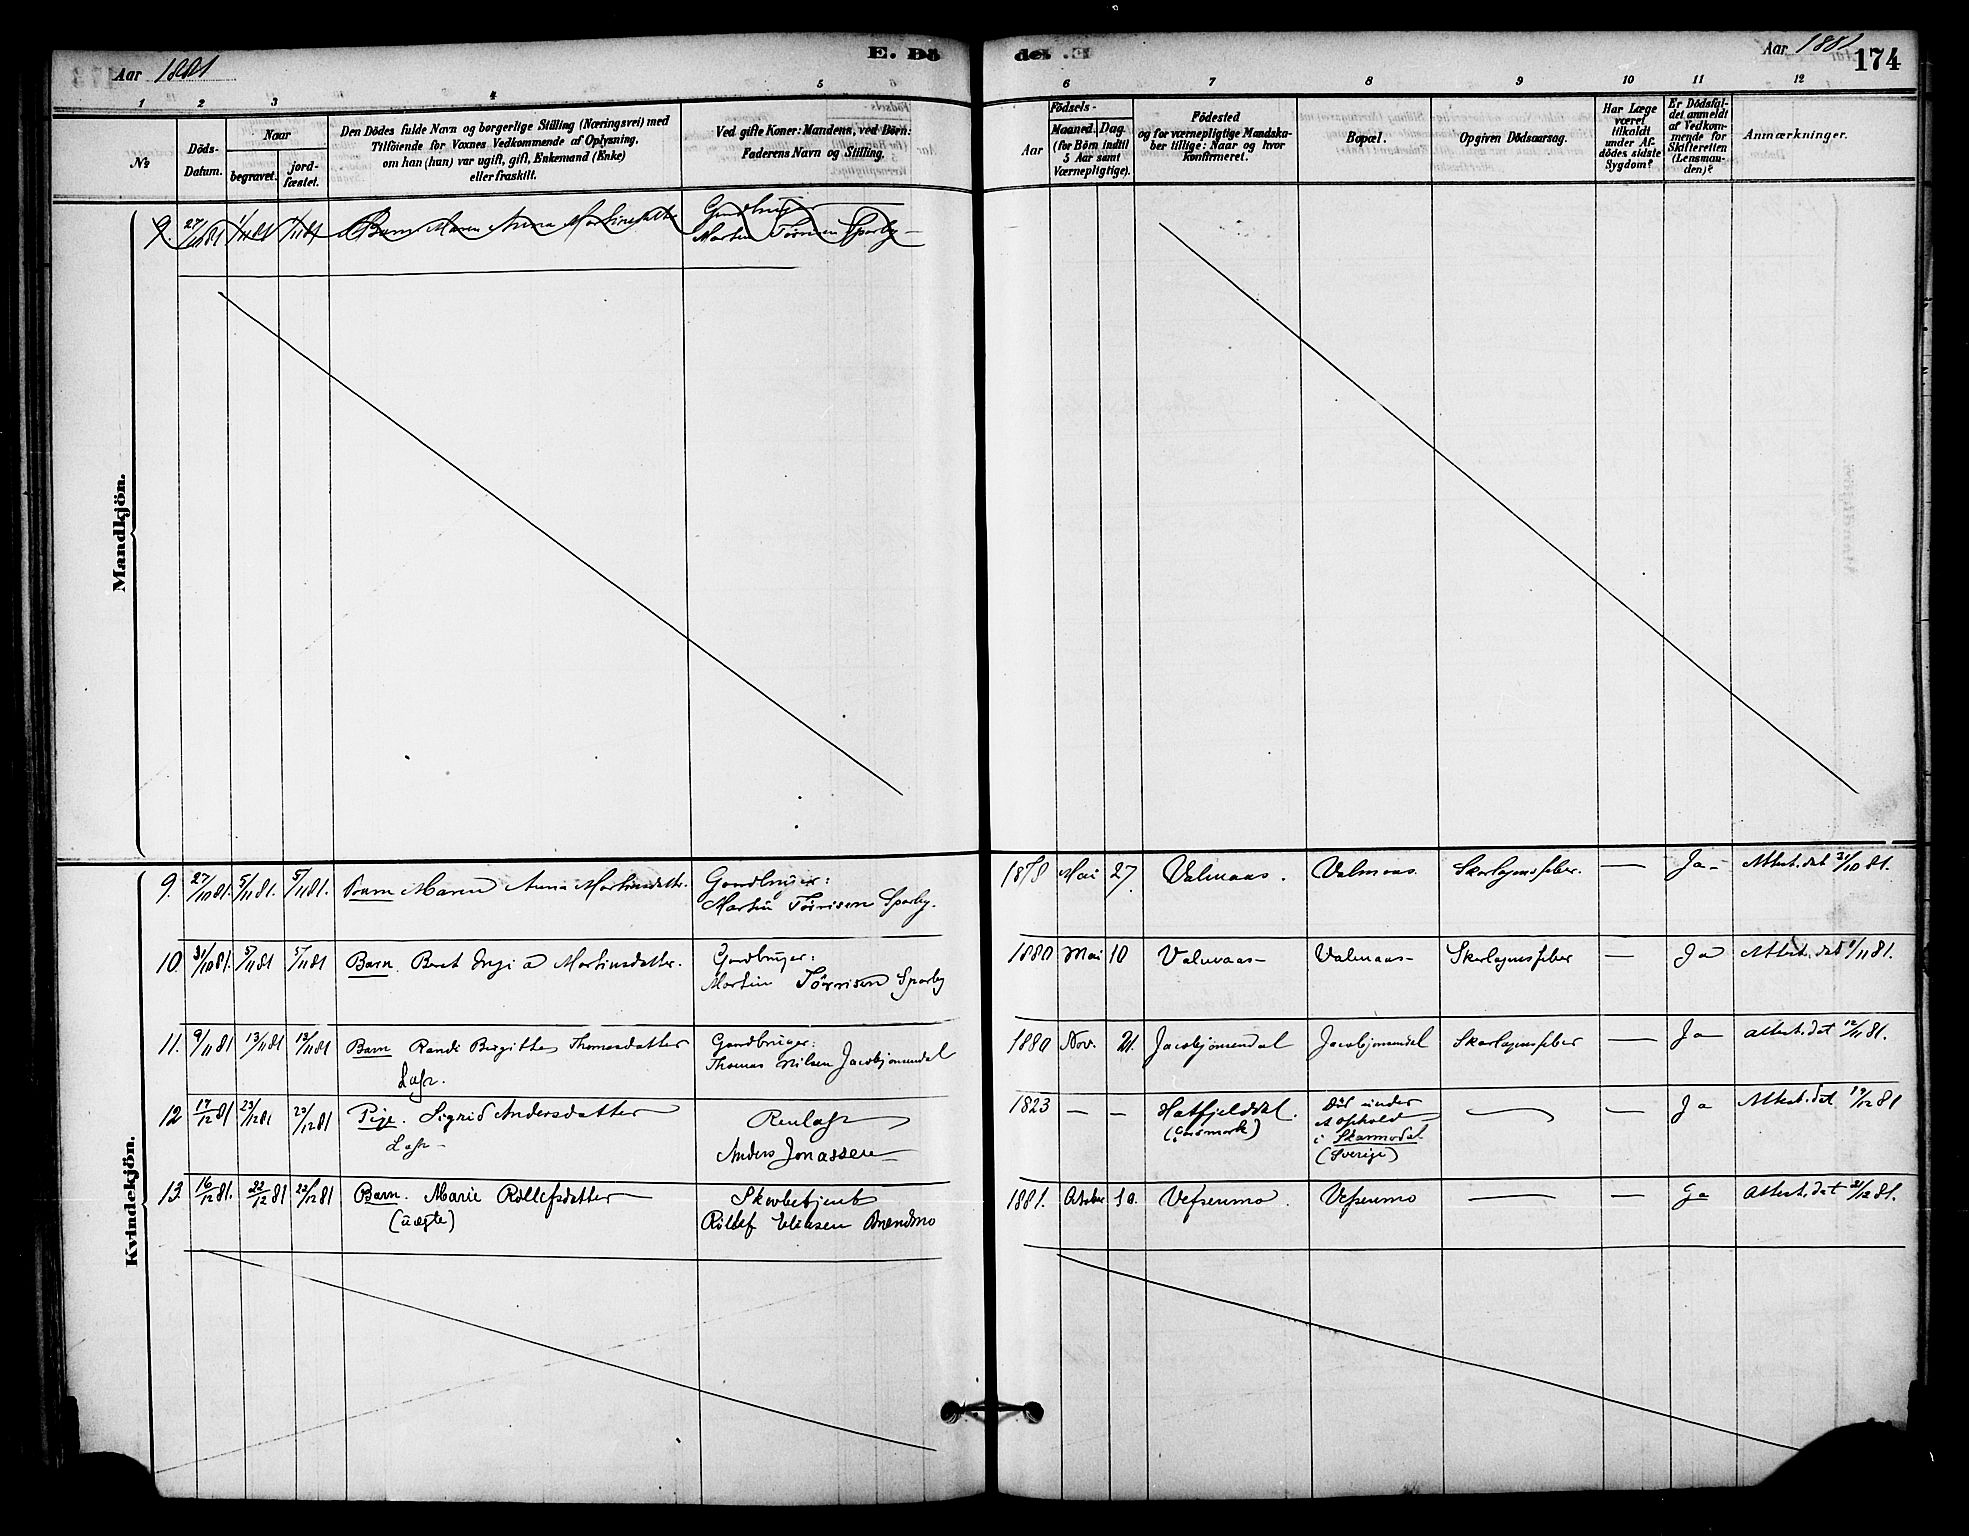 E. Dö de.
Aar 1881
Aar 1881
174
1 2 3 4 5 6 7 8 9 10 11 12
№
Döds-Datum.
Naar
begravet.
jord-fæstet.
Den Dödes fulde Navn og borgerlige Stilling (Næringsvei) med
Tilföiende for Voxnes Vedkommende af Oplysning,
om han (hun) var ugift, gift, Enkemand (Enke)
eller fraskilt.
Ved gifte Koner: Mandens, ved Börn:
Faderens Navn og Stilling.
Aar
Födsels-
Maaned. Dag.
(for Börn indtil
5 Aar samt
Værnepligtige).
Födested
og for værnepligtige Mandska-
ber tillige: Naar og hvor
konfirmeret.
Bopæl.
Opgiven Dödsaarsag.
Har Læge
været
tilkaldt
under Af-
dödes sidste
Sygdom?
Er Dödsfal-
det anmeldt
af Vedkom-
mende for
Skifteretten
(Lensman-
den)?
Anmærkninger.
Mandkjön.
9. 27/10 81 1/11 81 1/11 81 Barn Maren Anna Martinsdatter Gaardbruger
Martin Tørrisen Sparby
Kvindekjön.
9. 27/10 81. 5/11 81. 5/11 81. Barn Maren Anna Martinsdatter. Gaardbruger:
Martin Tørrisen Sparby.
1878 Mai 27. Valmaas. Valmaas. Skarlagensfeber. — Ja - Attest. dat 31/10 81.
10. 31/10 81. 5/11 81 5/11 81 Barn. Beret Martinsdatter. Gaardbruger:
Martin Tørrisen Sparby
1880 Mai 10 Valmaas - Valmaas - Skarlagensfeber — Ja Attest. dat 1/11 81.
11. 9/11 81 13/11 81 13/11 81 Barn Randi Birgitte Thomasdatter Gaardbruger:
Thomas Nilsen Jacobjonsendal
1880 Nov. 21. Jacobjonsendal Jacobjonsendal Skarlagensfeber — Ja attest. dat 12/11 81.
Lap.
12 17/12 81 23/12 81 23/12 81 Pige. Sigrid Andersdatter Renlap
Lap - Anders Jonassen
1823 — — Hatfjelddal. Død under
et ophold
i Skarmodal
(Sverige)
Ja Attest. dat 19/12 81
13. 16/12 81. 22/12 81 22/12 81 Barn. Marie Rollefsdatter
(uægte) Skovbetjent
Rollef Brendmo
1881. October 10. Vefsenmo. Vefsenmo — — Ja attest. dat 21/12 81.